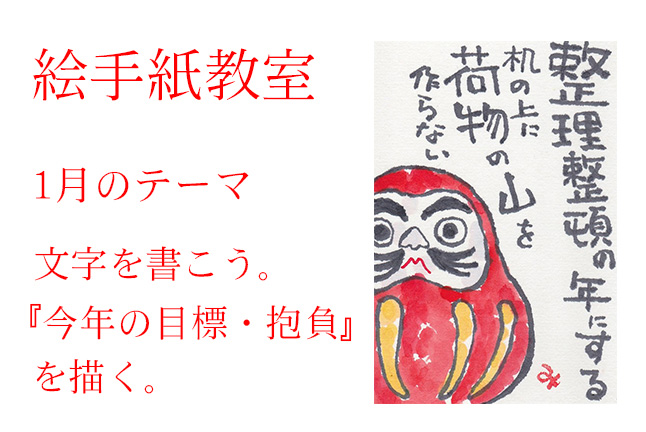 絵手紙教室
1月のテーマ
文字を書こう。
『今年の目標・抱負』
を描く。
整理整頓の年にする
机の上に
荷物の山を
作らない
み